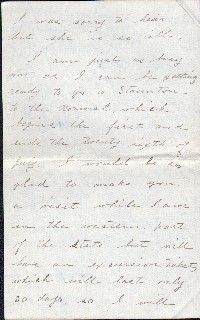 I was sorry to hear
that she is so ill.
I am just as busy
now as I can be getting
ready to go to Staunton
to the Normal, which
begins the first and
ends the twenty ninth of
July. I would be so
glad to make you
a visit while I am
in the western part
of the State but will
have an excursion ticket,
which will last only
30 days so I will